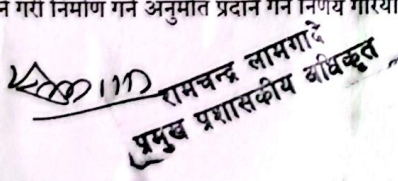 गरी निर्माण गर्न अनुमति प्रदान गर्ने निर्णय गरिया
रामचन्द्र लामगादे
प्रमुख प्रशासकीय अधिकृत